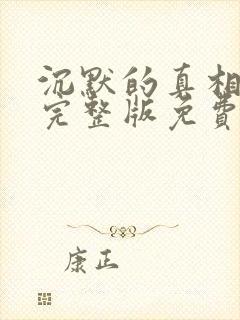 沉默的真相
完整版免费
康正